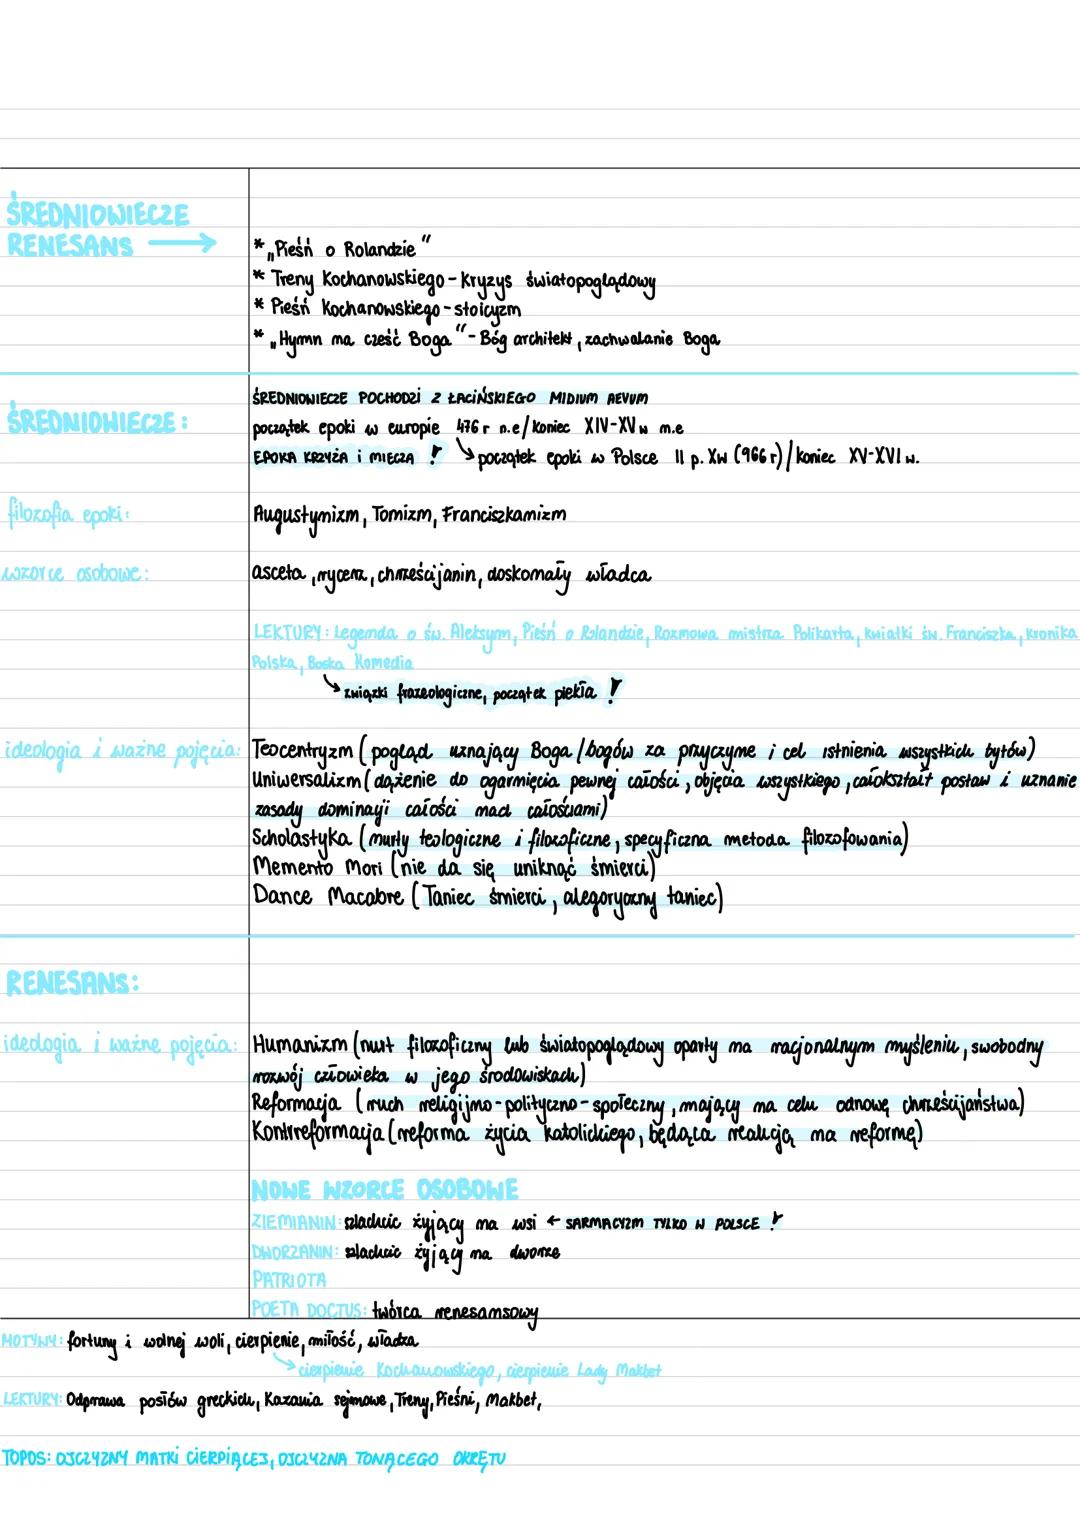 ŚREDNIOWIECZE
RENESANS →
* „Pieśń o Rolandzie"
* Treny Kochanowskiego - Kryzys światopoglądowy
* Pieśń Kochanowskiego - stoicyzm
* „Hymn na cześć Boga" - Bóg architekt, zachwalanie Boga
ŚREDNIOWIECZE:
ŚREDNIOWIECZE POCHODZI Z ŁACIŃSKIEGO MIDIUM AEVUM
początek epoki w europie 476 r n.e/koniec XIV-XV w n.e
EPOKA KRZYŻA i MIECZA ! ↳ początek epoki w Polsce II p. Xw (966 r)/koniec XV-XVI w.
filozofia epoki: Augustynizm, Tomizm, Franciszkanizm
wzorce osobowe: asceta, rycerz, chrześcijanin, doskonały władca
LEKTURY: Legenda o św. Aleksym, Pieśń o Rolandzie, Rozmowa mistrza Polikarta, kwiatki św. Franciszka, kronika
Polska, Boska Komedia
↳ związki frazeologiczne, początek piekła !
ideologia i ważne pojęcia: Teocentryzm (pogląd uznający Boga/bogów za przyczynę i cel istnienia wszystkich bytów)
Uniwersalizm (dążenie do ogarnięcia pewnej całości, objęcia wszystkiego, całokształt postaw i uznanie
zasady dominacji całości nad całościami)
Scholastyka (nurty teologiczne i filozoficzne, specyficzna metoda filozofowania)
Memento Mori (nie da się uniknąć śmierci)
Dance Macabre (Taniec śmierci, alegoryczny taniec)
RENESANS:
ideologia i ważne pojęcia: Humanizm (nurt filozoficzny lub światopoglądowy oparty na racjonalnym myśleniu, swobodny
rozwój człowieka w jego środowiskach)
Reformacja (ruch religijno-polityczno-społeczny, mający na celu odnowę chrześcijaństwa)
Kontrreformacja (reforma życia katolickiego, będąca reakcją na reformę)
NOWE WZORCE OSOBOWE
ZIEMIANIN: szlachcic żyjący na wsi ← SARMACYZM TYLKO W POLSCE !
DWORZANIN: szlachcic żyjący na dworze
PATRIOTA
POETA DOCTUS: twórca renesansowy
MOTYWY: fortuny i wolnej woli, cierpienie, miłość, władza
↳ cierpienie Kochanowskiego, cierpienie Lady Makbet
LEKTURY: Odprawa posłów greckich, Kazania sejmowe, Treny, Pieśni, Makbet,
TOPOS: OJCZYZNY MATKI CIERPIĄCEJ, OJCZYZNA TONĄCEGO OKRĘTU